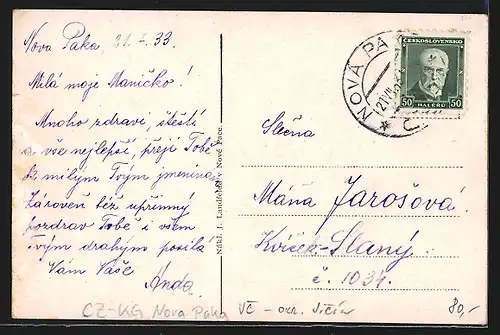 Nova Paka 21.7.33
Milá moje Maničko!
Mnoho zdraví, štěstí
a vše nejlepší, přeji Tobě
k milým Tvým jmeninám
Zároveň též upřímný
pozdrav Tobě i všem
Tvým drahým posílá
Vám Vaše
Anda
CZ-KG Nova Paka
Nákl. J. Landfeld v Nové Pace.
NOVÁ PA
ČESKOSLOVENSKO
50 HALÉŘŮ 50
Slečna
Máňa Jarošová
Kvíček-Slaný
č. 1034.
VČ - okr. Jičín
80,-